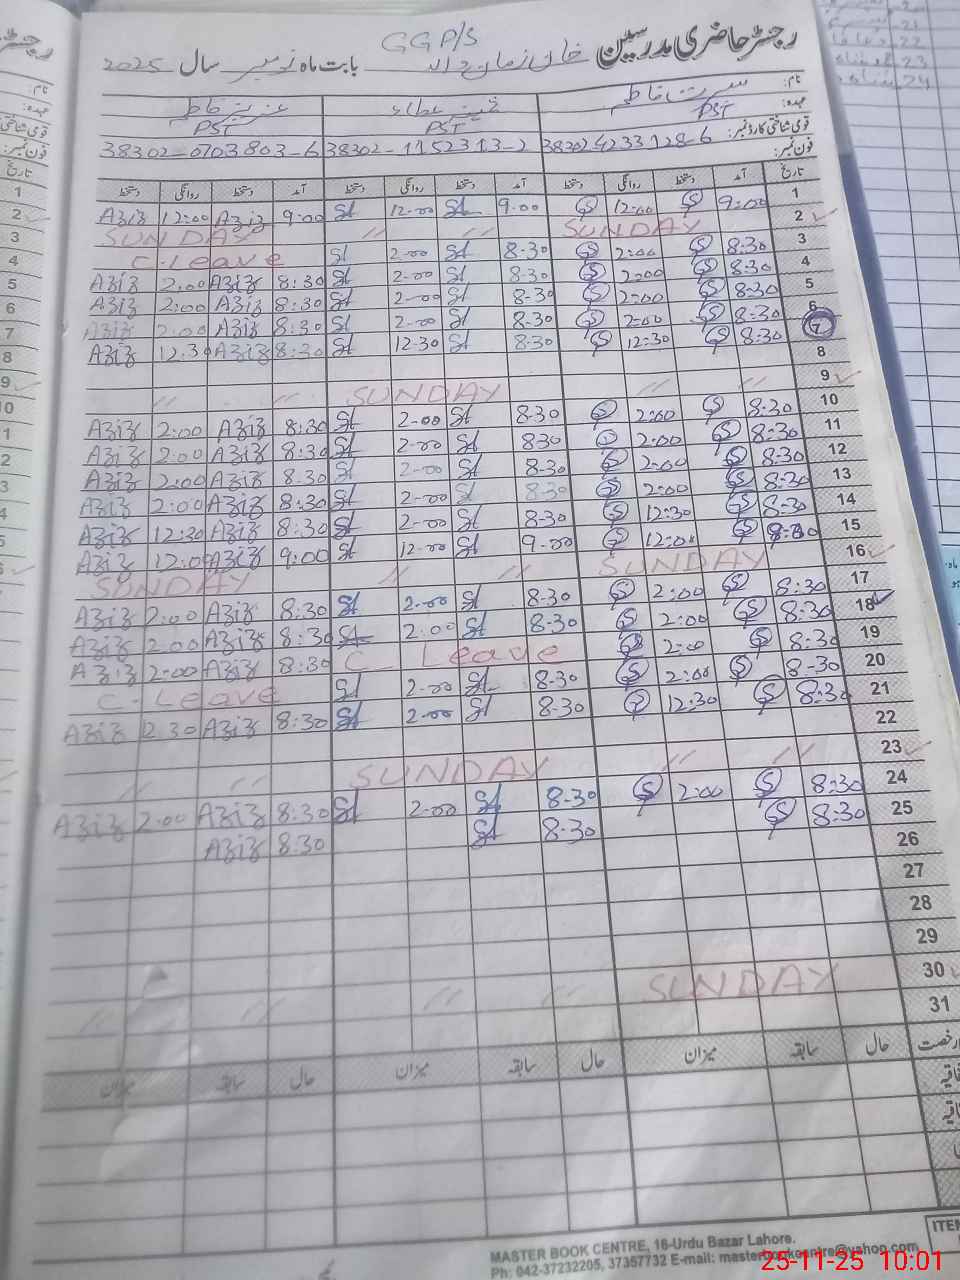 رجسٹر حاضری مدرسین خان زمان والا GGP/S بابت ماہ نومبر سال 2025
نام:
عہدہ: PST PST PST
قومی شناختی کارڈ نمبر: 38302-1152313-2 38302-0703803-6
فون نمبر:
تاریخ آمد دستخط روانگی دستخط آمد دستخط روانگی دستخط آمد دستخط روانگی دستخط
1 9:00 S 12:00 S 9.00 St 12-00 St 9:00 Aziz 12:00 Aziz
2 SUNDAY // // SUNDAY
3 8:30 S 2:00 S 8-30 St 2-00 St C-Leave
4 8:30 S 2:00 S 8-30 St 2-00 St 8:30 Aziz 2:00 Aziz
5 8:30 S 2:00 S 8-30 St 2-00 St 8:30 Aziz 2:00 Aziz
6 8:30 S 2:00 S 8-30 St 2-00 St 8:30 Aziz 2:00 Aziz
7 8:30 S 12:30 S 8-30 St 12-30 St 8:30 Aziz 12:30 Aziz
8
9 // // SUNDAY // //
10 8:30 S 2:00 S 8-30 St 2-00 St 8:30 Aziz 2:00 Aziz
11 8:30 S 2:00 S 830 St 2-00 St 8:30 Aziz 2:00 Aziz
12 8:30 S 2:00 S 8-30 St 2-00 St 8.30 Aziz 2:00 Aziz
13 8:30 S 2:00 S 8-30 St 2-00 St 8:30 Aziz 2:00 Aziz
14 8:30 S 12:30 S 8-30 St 2-00 St 8:30 Aziz 12:30 Aziz
15 S 12:00 S 9-00 St 12-00 St 9:00 Aziz 12:00 Aziz
16 SUNDAY // // SUNDAY
17 8:30 S 2:00 S 8-30 St 2-00 St 8:30 Aziz 2:00 Aziz
18 8:30 S 2:00 S 8-30 St 2:00 St 8:30 Aziz 2:00 Aziz
19 8:30 S 2:00 S C Leave 8:30 Aziz 2:00 Aziz
20 8-30 S 2:00 S 8-30 St 2-00 St C-Leave
21 8:30 S 12:30 S 8-30 St 2-00 St 8:30 Aziz 2 30 Aziz
22
23 // // SUNDAY // //
24 8:30 S 2:00 S 8-30 St 2-00 St 8:30 Aziz 2:00 Aziz
25 8:30 S 8-30 St 8:30 Aziz
26
27
28
29
30 SUNDAY // // //
31
حال سابقہ میزان حال سابقہ میزان حال سابقہ میزان
MASTER BOOK CENTRE, 16-Urdu Bazar Lahore.
Ph: 042-37232205, 37357732 E-mail: masterbookcentre@yahoo.com
ITEM
25-11-25 10:01